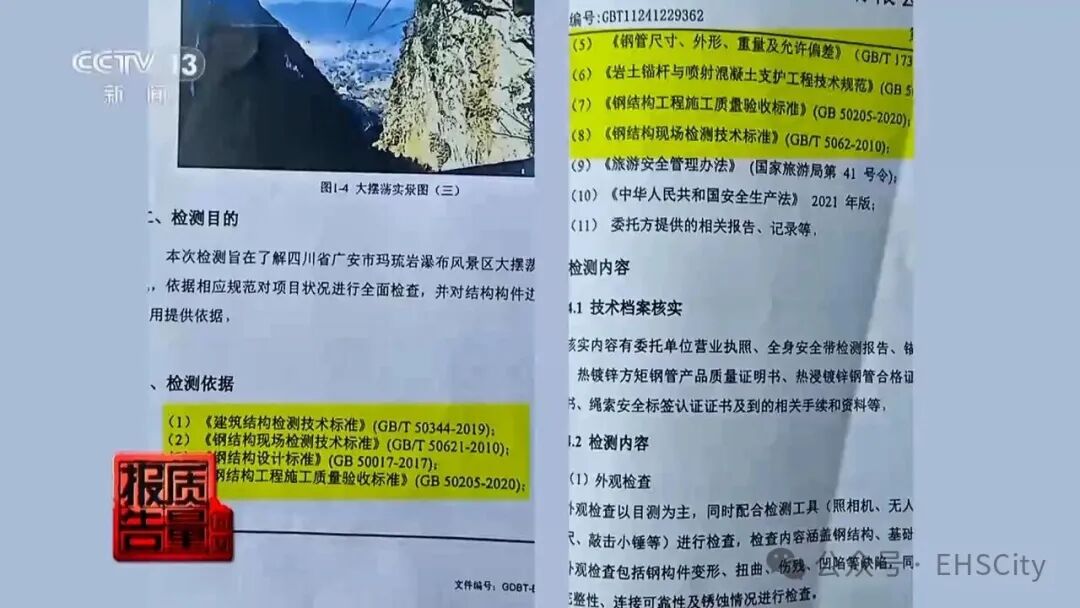 CCTV 13
新闻
图1-4 大摆荡实景图（三）
二、检测目的
本次检测旨在了解四川省广安市玛琉岩瀑布风景区大摆荡
依据相应规范对项目状况进行全面检查，并对结构构件
用提供依据，
、检测依据
(1) 《建筑结构检测技术标准》(GB/T 50344-2019);
(2) 《钢结构现场检测技术标准》(GB/T 50621-2010);
钢结构设计标准》(GB 50017-2017);
钢结构工程施工质量验收标准》(GB 50205-2020);
文件编号：GDBT-
质量
报告
编号:GBT11241229362
(5) 《钢管尺寸、外形、重量及允许偏差》 (GB/T 173
(6) 《岩土锚杆与喷射混凝土支护工程技术规范》(GB 5
(7) 《钢结构工程施工质量验收标准》(GB 50205-2020);
(8) 《钢结构现场检测技术标准》(GB/T 5062-2010);
(9) 《旅游安全管理办法》 (国家旅游局第 41 号令);
(10) 《中华人民共和国安全生产法》 2021 年版;
(11) 委托方提供的相关报告、记录等，
检测内容
4.1 技术档案核实
核实内容有委托单位营业执照、全身安全带检测报告、锚
热镀锌方矩钢管产品质量证明书、热浸镀锌钢管合格证
书、绳索安全标签认证证书及到的相关手续和资料等，
4.2 检测内容
(1) 外观检查
外观检查以目测为主，同时配合检测工具（照相机、无人
尺、敲击小锤等）进行检查，检查内容涵盖钢结构、基础
外观检查包括钢构件变形、扭曲、伤残、凹陷等缺陷，同
完整性、连接可靠性及锈蚀情况进行检查。
公众号 · EHSCity